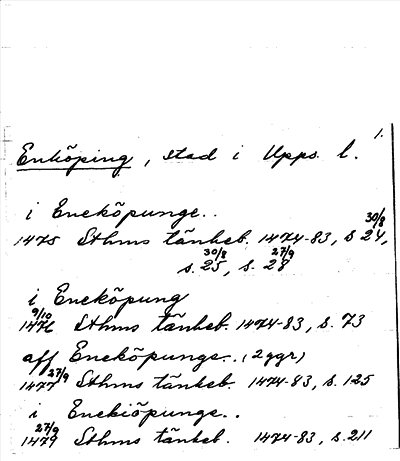 1.
Enköping, stad i Upps. l.
i Eneköpunge..
30/8
1475 Sthms tänkeb. 1474-83, s. 24,
30/8 27/9
s. 25, s. 28
i Eneköpung
9/10
1476 Sthms tänkeb. 1474-83, s. 73
aff Eneköpunge.. (2 ggr)
27/9
1477 Sthms tänkeb. 1474-83, s. 125
i Enekiöpunge..
27/9
1479 Sthms tänkeb. 1474-83, s. 211